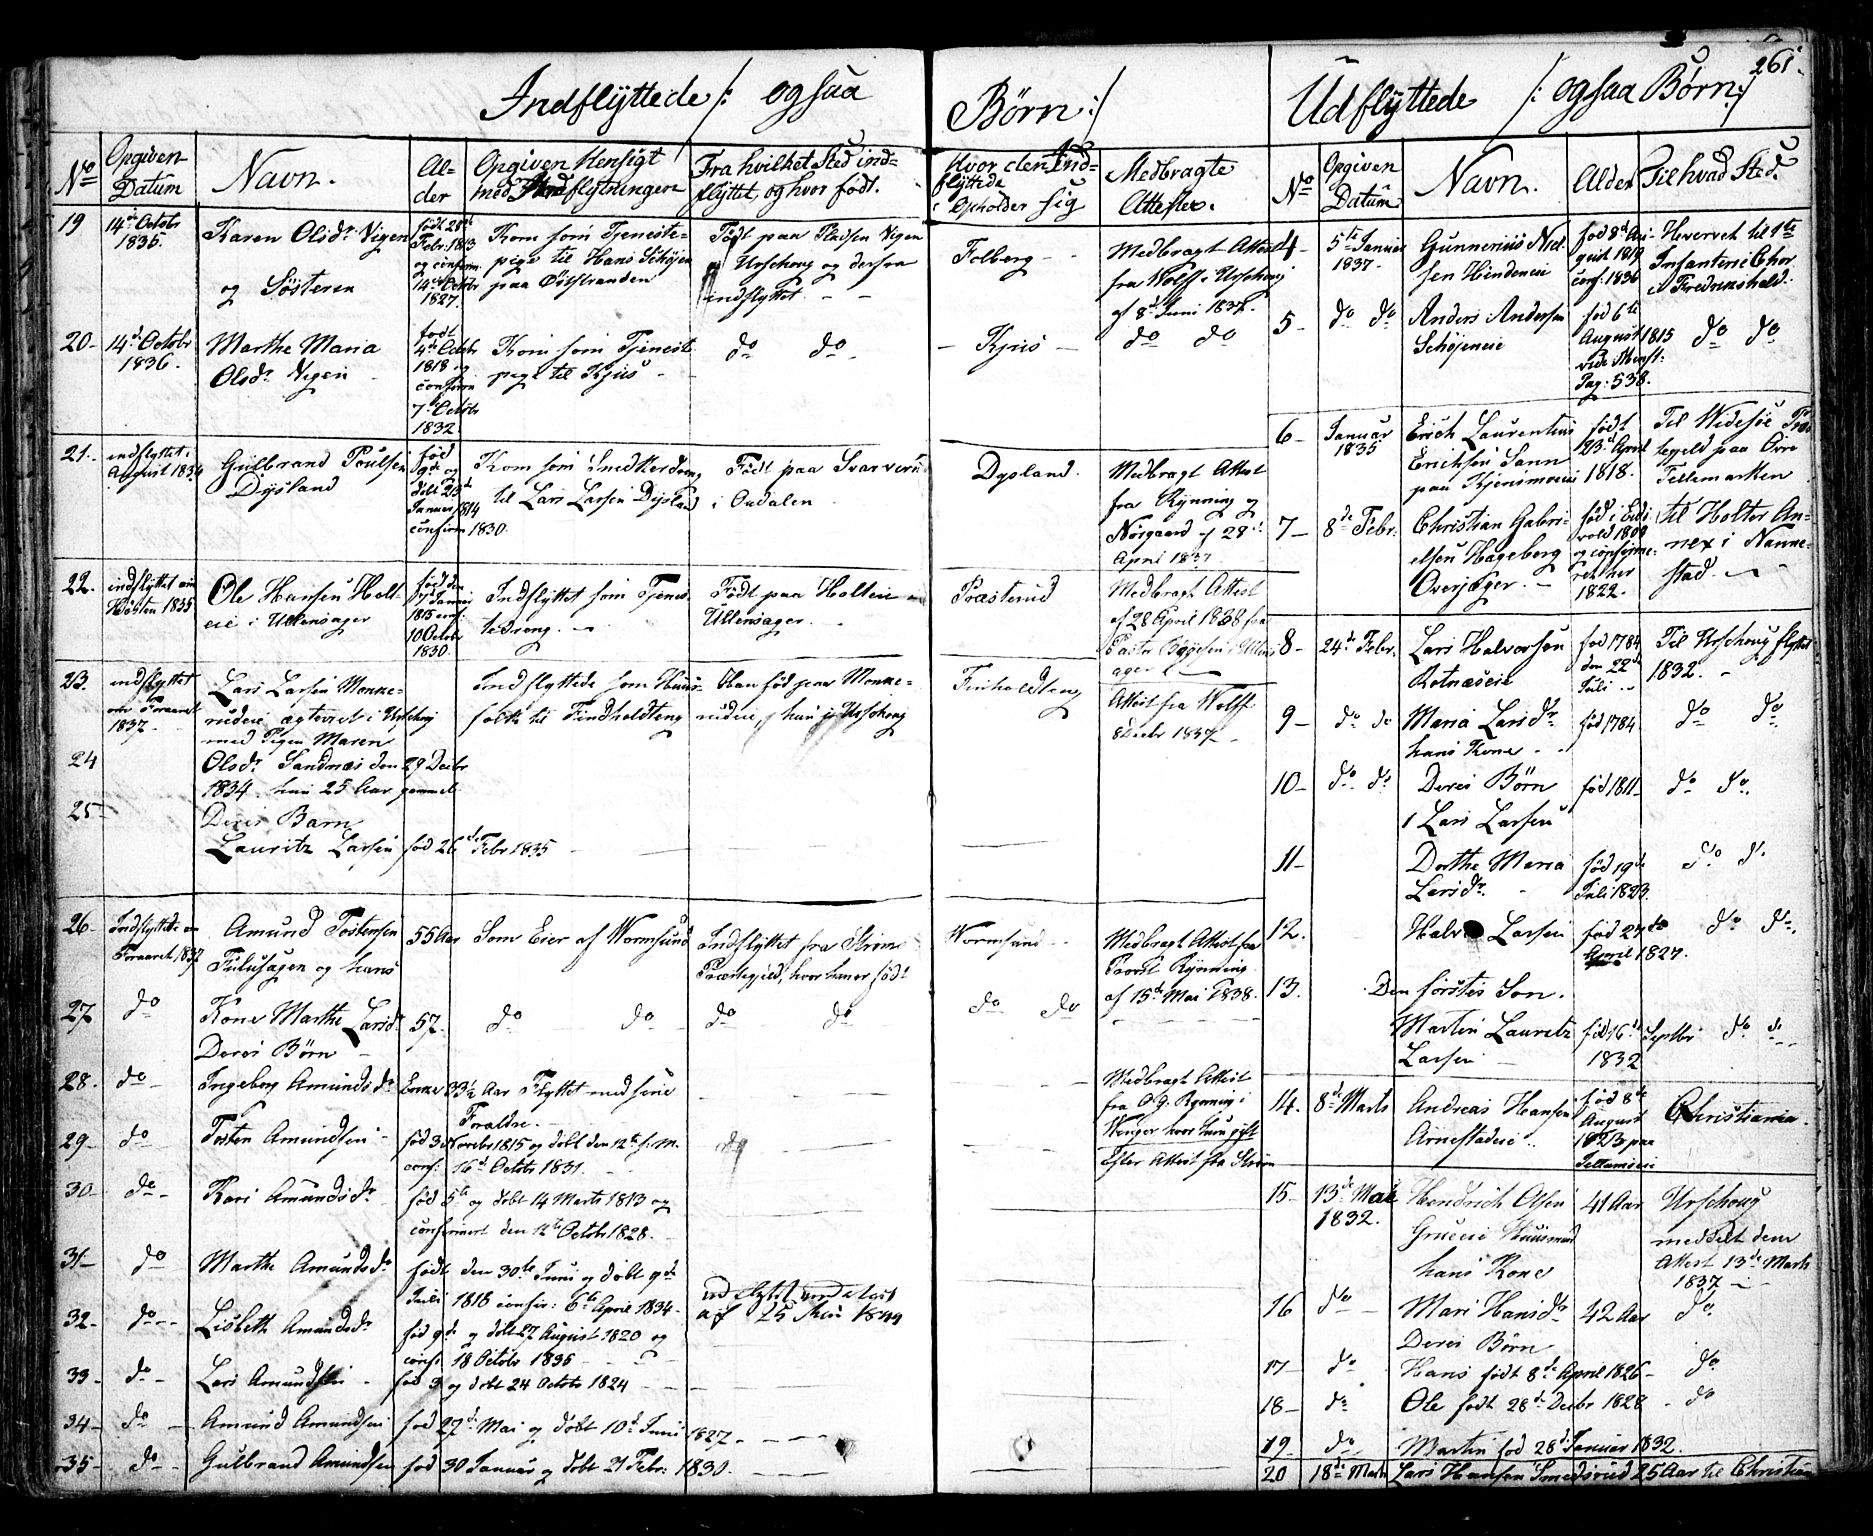 Indflyttede /: ogsaa Børn :/
No
Opgiven Datum
Navn.
Alder
Opgiven Hensigt med Indflytningen
Fra hvilket Sted indflyttet, og hvor født.
Hvor den Indflyttede opholder sig
Medbragte Attester.
19
14de Octobr 1836.
Karen Olsdr Vigen
og Søsteren
født 28de Febr. 1813
og confirm. 14de Octobr 1827.
Kom som Tjenestepige til Hans Schøyen paa Øststranden
Født paa Pladsen Vigen Urschoug og derfra indflyttet
Folberg
Medbragt Attest fra Wolff i Urschoug af 8de Juni 1837.
20
14de Octobr 1836.
Marthe Maria Olsdr Vigen
født 4de Octobr 1818 og confirm 7de Octobr 1832.
Kom som Tjenestepige til Kjus
do do
Kjus
do do
21.
indflyttet i August 1834
Gulbrand Poulsen Dysland
Kom som Snedkerdreng til Lars Larsen Dysland
Født paa Svarverud i Oudalen
Dysland.
Medbragt Attest fra Rynning og Nørgaard af 28de April 1837
confirm 1830.
22.
indflyttet om Høsten 1835
Ole Hansen Holteie i Ullensager
1815 conf: 10 Octobr 1830.
Indflyttet som Tjenestedreng.
Født paa Holteie Ullensager.
Præsterud
Medbragt Attest af 28 April 1838 fra Pastor
23.
indflyttet om Foraaret 1837
Lars Larsen Monkerudeie ægteviet i Urschoug med Pigen Maren
24
Olsdr Sandnæs den 29 Decbr 1834. hun 25 Aar gammel
Indflyttede som Huusfolk til Findholdteng
Han fød paa Monkerudeie, hun i Urschoug
Finholdteng
Attest fra Wolff 8 Decbr 1837
25
Deres Barn
Lauritz Larsen fød 26de Febr 1835
26
Indflyttede om Foraaret 1837
Amund Tostensen Fulusagen og hans
55 Aar
Som Eier af Wormsund
Indflyttet fra Strøms Præstegjeld, hvor han er født
Wormsund
Medbragt Attest fra Provst Rynning af 15de Mai 1838.
27
do
Kone Marthe Larsdr
57.
do do
do do
do do
Deres Børn
28.
do
Ingeborg Amundsdr
Enke 33½ Aar Flyttet med sine Foraldre.
Medbragt Attest fra O. G. Rynning i
29
do
Tosten Amundsen
fød 3de Novebr 1815 og døbt den 12te s: M.
conf: 16de Octobr 1831.
do
Efter Attest fra Strøm
30
do
Kari Amundsdr
fød 5te og døbt 14 Marts 1813 og
confirmert den 12te Octobr 1828.
31
do
Marthe Amundsdr
født den 30te Juni og døbt 9de
Juli 1818 confir: 6te April 1834.
32
do
Lisbeth Amundsdr
fød 9de og døbt 27 August 1820 og
conf. 18 Octobr 1835
33
do
Lars Amundsen
fød 9 og døbt 24 Octobr 1824
34
do
Amund Amundsen
fød 27de Mai og døbt 10de Juni 1827.
35
do
Gulbrand Amundsen
fød 30 Januar og døbt 21 Febr: 1830.
Udflyttede /: ogsaa Børn :/
261.
No
Opgiven Datum
Navn.
Alder
Til hvad Sted.
4
5te Januar 1837
Gunnerius Nielsen Hindeneie
fød 8de August 1819
conf. 1836
Hvervet til 1te Infanterie Chor i Fredrikshald.
5
do do
Anders Andersen Schøieneie
fød 6te August 1815
vide Minst: Pag: 538.
do do
6
Januar 1835
Erich Laurentius Eriksen Sann paa Kjensmoeie
født 23de April 1818.
Til Widesøe Præstegjeld paa Øvre Tellemarken
7
8de Febr.
Christian Gabrielsen Hageberg Overjæger.
fød i Eidsvold 1800 og confirmeret her 1822.
til Holter Annex i Nannestad.
8
24de Febr.
Lars Halvorsen Rotnæseie
fød 1784 den 22de Juli
Til Urschoug flyttet 1832.
9
do do
Maria Larsdr hans Kone
fød 1784
do do
10
do do
Deres Børn
1 Lars Larsen
fød 1811
do do.
11
Dorthe Maria Larsdr.
fød 19de Juli 1823
do do
12.
Halvor Larsen
fød 27de April 1827.
do do.
13.
Den førstes Søn.
Martin Lauretz Larsen
fød 16de Septbr 1832
do do
14.
8de Marts
Andreas Hansen Arnestadeie
fød 8de August 1823 paa
Christiania.
15
13de Mai 1832.
Hendrich Olsen Grueeie Huusmand
41 Aar
Urschoug meddelt dem Attest 13de Marts 1837
hans Kone
16
do
Mari Hansdr
42 Aar
do.
Deres Børn
17
do
Hans født 8de April 1826
do
18
do
Ole født 28de Decbr 1828
do
19
do
Martin fød 28de Januar 1832.
20
18de Marts
Lars Hansen Smedsrud 25 Aar til Christiania